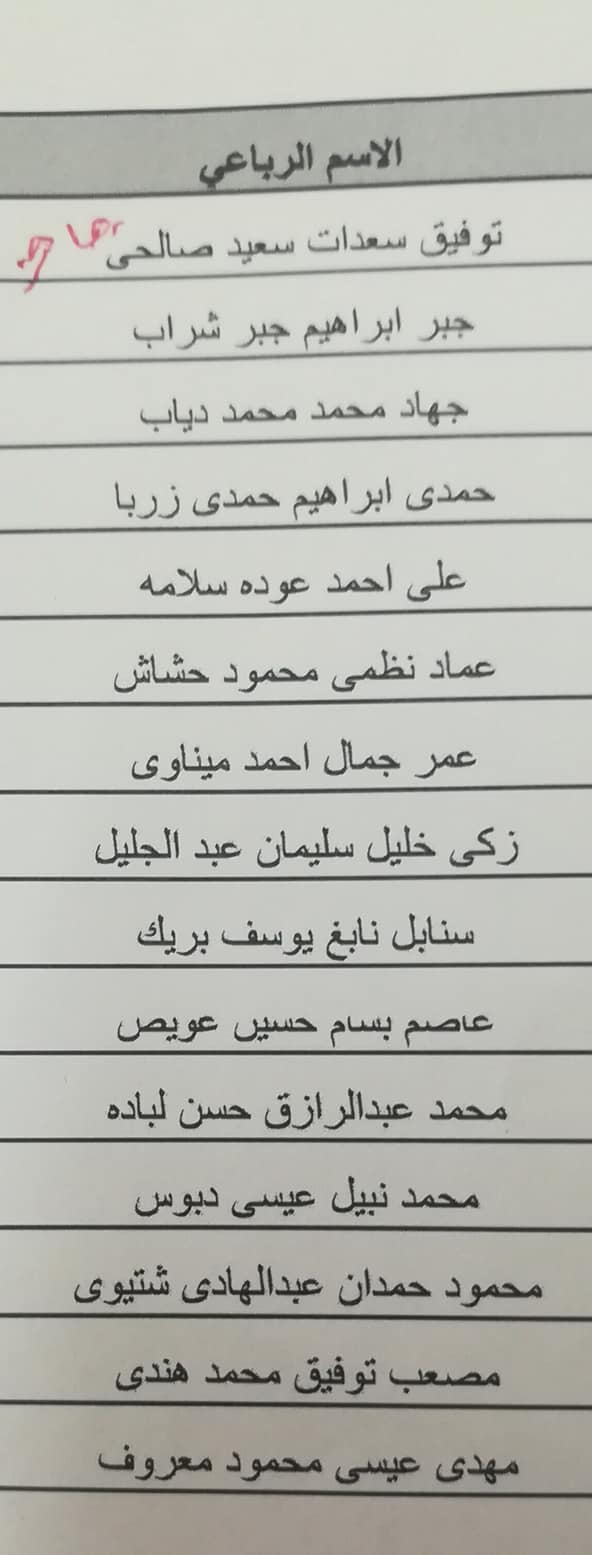 الاسم الرباعي
توفيق سعدات سعيد صالحى
جبر ابراهيم جبر شراب
جهاد محمد محمد دياب
حمدى ابراهيم حمدى زربا
على احمد عوده سلامه
عماد نظمى محمود حشاش
عمر جمال احمد ميناوى
زكى خليل سليمان عبد الجليل
سنابل نابغ يوسف بريك
عاصم بسام حسين عويص
محمد عبدالرازق حسن لباده
محمد نبيل عيسى دبوس
محمود حمدان عبدالهادى شتيوى
مصعب توفيق محمد هندى
مهدى عيسى محمود معروف